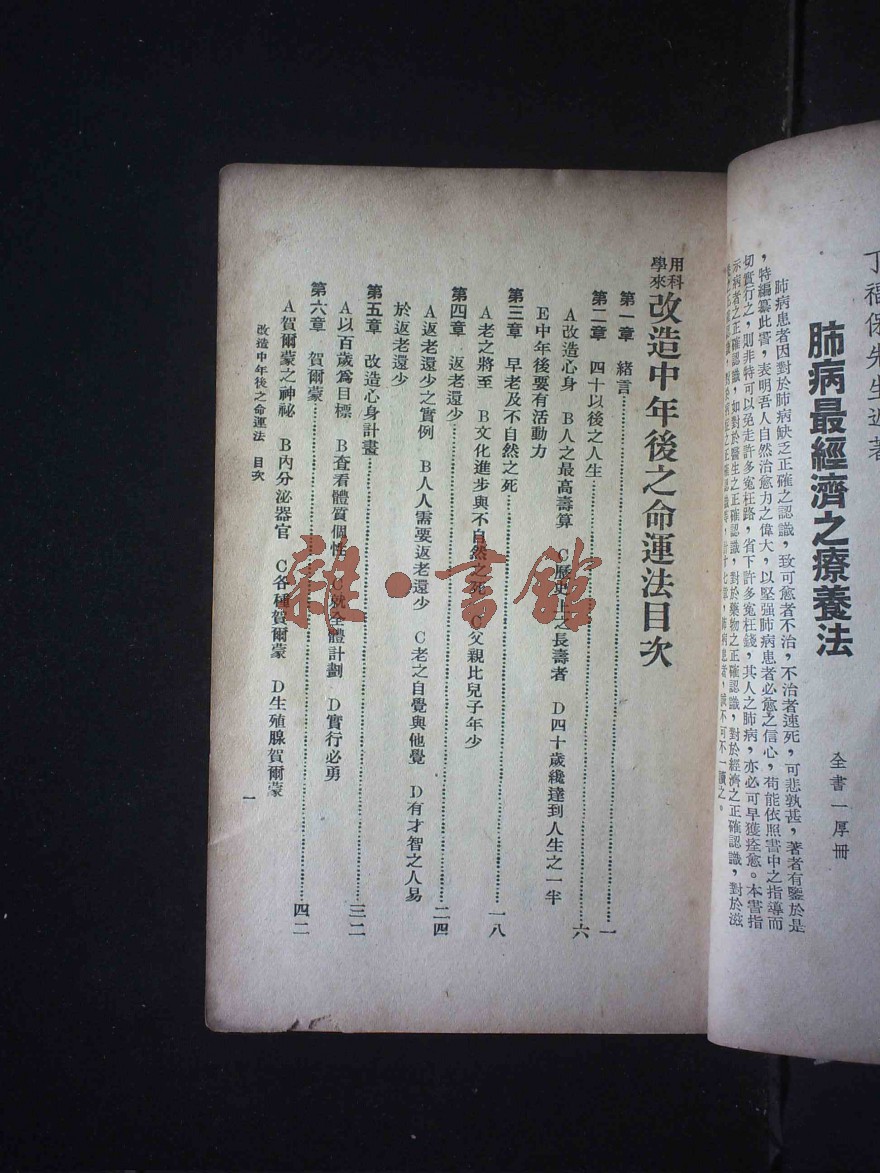 丁福保先生近著
肺病最經濟之療養法
全書一厚冊
肺病患者因對於肺病缺乏正確之認識,致可愈者不治,不治者速死,可悲孰甚,著者有鑒於是
,特編纂此書,表明吾人自然治愈力之偉大,以堅强肺病患者必愈之信心,苟能依照書中之指導而
切實行之,則非特可以免走許多寃枉路,省下許多寃枉錢,其人之肺病,亦必可早獲痊愈。本書指
示病者之正確認識,如對於醫生之正確認識,對於藥物之正確認識,對於經濟之正確認識,對於滋
用科學來改造中年後之命運法目次
第一章 緒言……一
第二章 四十以後之人生……六
A改造心身 B人之最高壽算 C歷史上之長壽者 D四十歲纔達到人生之一半
E中年後要有活動力
第三章 早老及不自然之死……一八
A老之將至 B文化進步與不自然之死 C父親比兒子年少
第四章 返老還少……二四
A返老還少之實例 B人人需要返老還少 C老之自覺與他覺 D有才智之人易
於返老還少
第五章 改造心身計畫……三二
A以百歲爲目標 B查看體質個性 C就全體計劃 D實行必勇
第六章 賀爾蒙……四二
A賀爾蒙之神祕 B內分泌器官 C各種賀爾蒙 D生殖腺賀爾蒙
改造中年後之命運法 目次
一
雜·書館